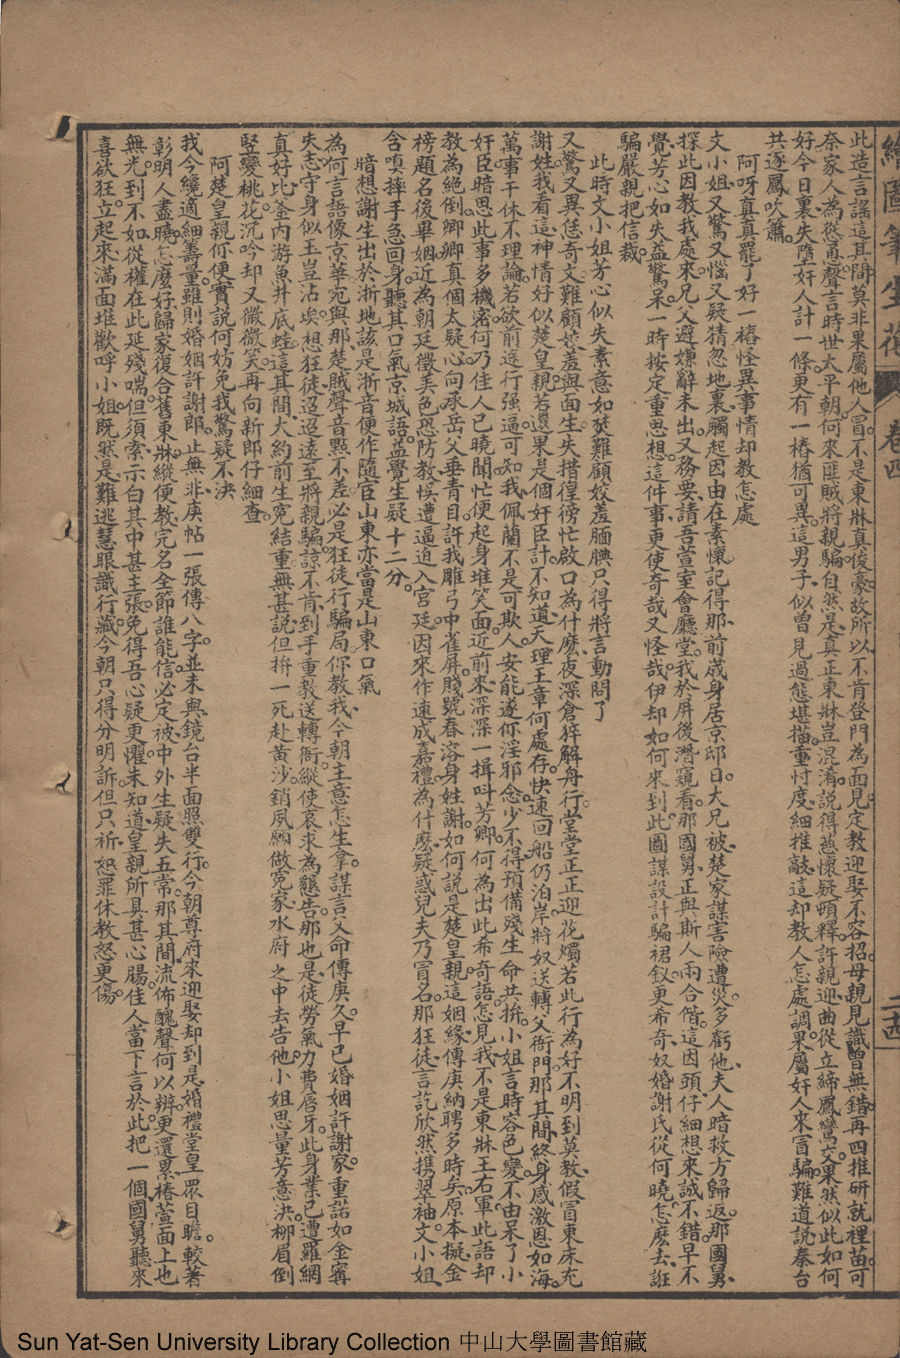 繪圖筆生花 卷四 二四
此造言謠這其間莫非果屬他人冒不是東牀真俊豪故所以不肯登門為面見定教迎娶不容招母親見識曾無錯再四推研就裡苗可
奈家人為從憑聲言時世太平朝何來匪賊將親騙自然是真正東牀豈混淆說得慈懷疑頓釋許親迎曲從立締鳳鸞交果然似此如何
好今日裏失墮奸人計一條更有一樁猶可異這男子似曾見過態堪描重忖度細推敲這却教人怎處調果屬奸人來冒騙難道說秦台
共逐鳳吹簫
阿呀真真罷了好一樁怪異事情却教怎處
文小姐又驚又惱又疑猜忽地裏觸起因由在素懷記得那前歲身居京邸日大兄被楚家謀害險遭災多虧他夫人暗救方歸返那國舅
探此因教我處來兄父避嫌辭未出又務要請吾萱室會廳堂我於屏後潛窺看那國舅正與斯人兩合偕這因頭仔細想來誠不錯早不
覺芳心如失益驚呆一時按定重思想這件事更使奇哉又怪哉伊却如何來到此圖謀設計騙裙釵更希奇奴婚謝氏從何曉怎麼去誑
騙嚴親把信裁
此時文小姐芳心似失素意如焚難顧姣羞腼腆只得將言動問了
又驚又異恁奇文難顧姣羞與面生失措徨徬忙啟口為什麼夜深倉猝解舟行堂堂正正迎花燭若此行為好不明到莫教假冒東床充
謝姓我看這神情好似楚皇親若還果是個奸臣計不知道天理王章何處存快速回船仍泊岸將奴送轉父衙門那其間終身感激恩如海
萬事干休不理論若欲前途行强逼可知我佩蘭不是可欺人安能遂你淫邪念少不得預備殘生命共拚小姐言時容色變不由呆了小
奸臣暗思此事多機密何乃佳人已曉聞忙便起身堆笑面近前來深深一揖呌芳卿何為出此希奇語怎見我不是東牀王右軍此語却
教為絕倒卿卿真個太疑心向承岳父垂青目許我雕弓中雀屏賤號春溶身姓謝如何說是楚皇親這姻緣傳庚納聘多時矣原本擬金
榜題名後畢姻近為朝廷徵美色恐防教悞遭逼迫入宮廷因來作速成嘉禮為什麼疑惑兒夫乃冒名那狂徒言訖欣然携翠袖文小姐
含嗔摔手急回身聽其口氣京城語益覺生疑十二分
暗想謝生出於浙地該是浙音便作隨宦山東亦當是山東口氣
為何言語像京華宛與那楚賊聲音點不差必是狂徒行騙局你教我今朝主意怎生拿謀言父命傳庚久早已婚姻許謝家重諾如金寗
失志守身似玉豈沾埃想狂徒迢迢遠至將親騙諒不肯到手重教送轉衙縱使哀求為懇告那也是徒勞氣力費唇牙此身業已遭羅網
真好比釜內游魚井底蛙這其間大約前生寃結重無甚說但拚一死赴黃沙銷夙願做寃家水府之中去告他小姐思量芳意決柳眉倒
竪變桃花沉吟却又微微笑再向新郎仔細查
阿楚皇親你便實說何妨免我驚疑不決
我今纔適細籌量雖則婚姻許謝郎止無非庚帖一張傳八字並未與鏡台半面照雙行今朝尊府來迎娶却到是婚禮堂皇眾目瞻較著
彰明人盡曉怎麼好歸家復合舊東牀縱便教完名全節誰能信必定被中外生疑失五常那其間流佈醜聲何以辨更還累椿萱面上也
無光到不如從權在此延殘喘但須索示白其中甚主張免得吾心疑更懼未知道皇親所具甚心腸佳人當下言於此把一個國舅聽來
喜欲狂立起來滿面堆歡呼小姐既然是難逃慧眼識行藏今朝只得分明訴但只祈恕罪休教怒更傷
Sun Yat-Sen University Library Collection 中山大學圖書館藏